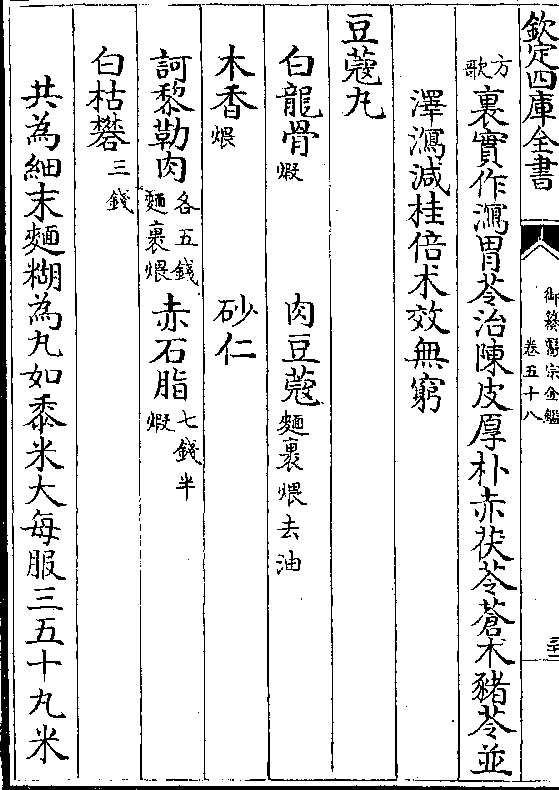 欽定四庫全書
御纂醫宗金鑑
卷五十八
方歌
裏實作瀉胃苓治陳皮厚朴赤茯苓蒼术豬苓並
澤瀉減桂倍术效無窮
豆蔻丸
白龍骨煆 肉豆蔻麵裹煨去油
木香煨 砂仁
訶黎勒肉各五錢麵裹煨 赤石脂七錢半煆
白枯礬三錢
共為細末麵糊為丸如黍米大每服三五十丸米